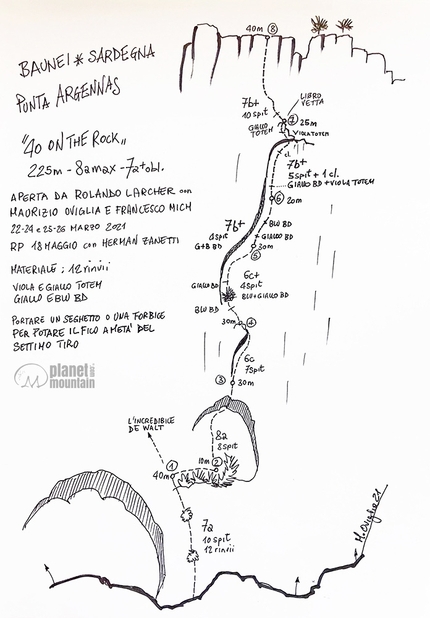 BAUNEI * SARDEGNA
PUNTA ARGENNAS
"40 ON THE ROCK„
225m - 8a max - 7a+ obl.
APERTA DA ROLANDO LARCHER con
MAURIZIO OVIGLIA E FRANCESCO MICH
22-24 e 25-26 MARZO 2021
RP 18 MAGGIO con HERMAN ZANETTI
MATERIALE : 12 rinvii
VIOLA E GIALLO TOTEM
GIALLO E BLU BD
PORTARE UN SEGHETTO O UNA FORBICE
PER POTARE IL FICO A METÀ DEL
SETTIMO TIRO
planet mountain .com
40m 8
7b+
10 spit
LIBRO
VETTA
7 25m
GIALLO
TOTEM
VIOLA TOTEM
cl.
7b+
5 spit + 1 cl.
GIALLO BD + VIOLA TOTEM
6 20m
7b+
4 spit
G+B BD
BLU BD
GIALLO BD
30m
5
6c+
4 spit
GIALLO BD
BLU+GIALLO BD
BLU BD
30m 4
6c
7 spit
3 30m
L'INCREDIBILE
DE WALT
8a
8 spit
1
10m 2
40m
7a
10 spit
12 rinvii
M. Oviglia 21